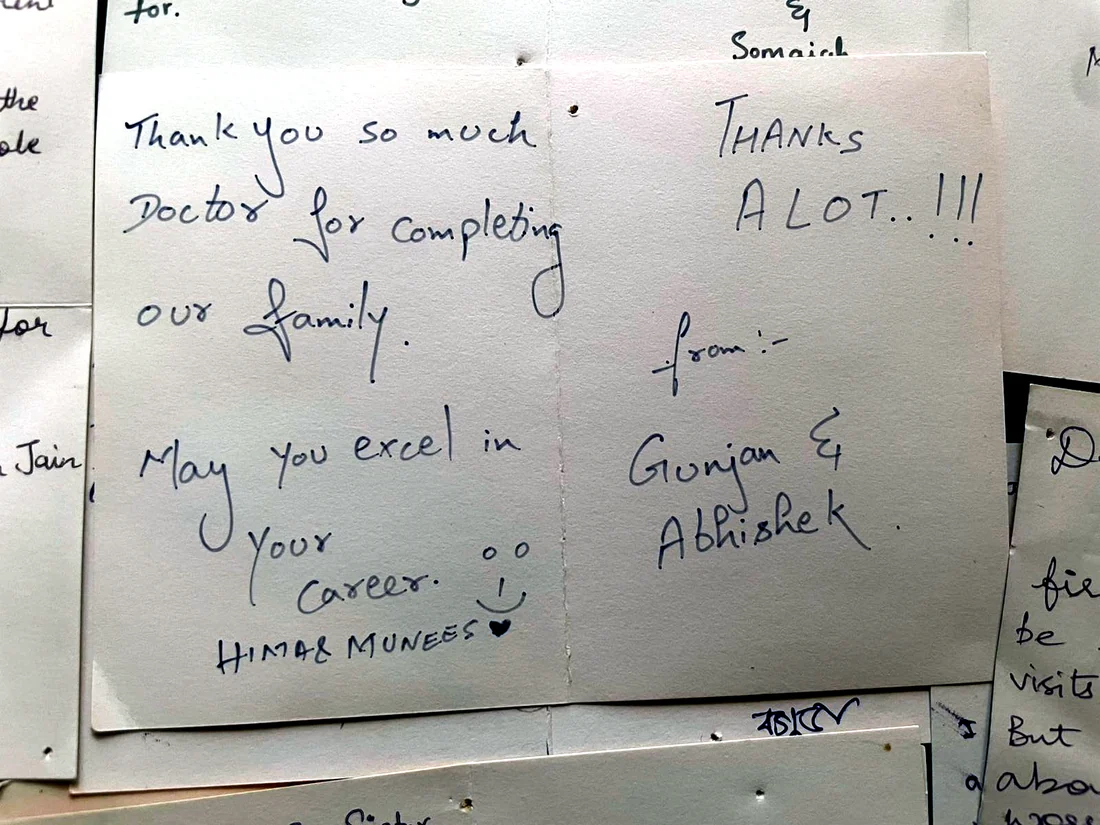 for.
&
Somaiah
the
for
Jain
Thank you so much
Doctor for completing
our family.
May you excel in
your
career.
HIMA & MUNEES ♥
THANKS
A LOT..!!!
from :-
Gunjan &
Abhishek.
be
visits
But